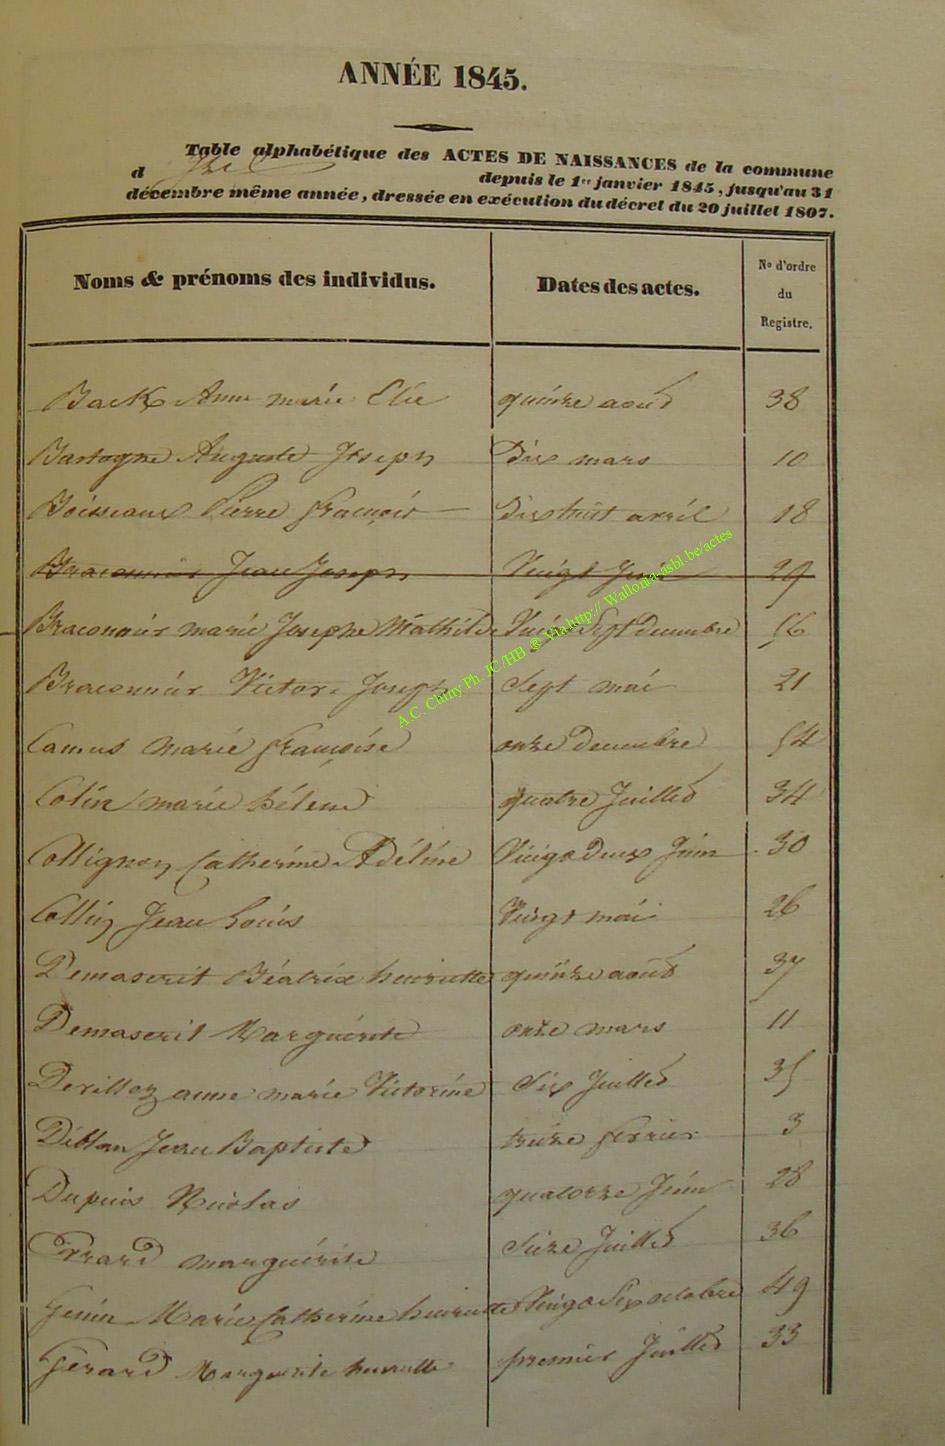 ANNÉE 1845.
Table alphabétique des ACTES DE NAISSANCES de la commune
d depuis le 1er janvier 1845, jusqu'au 31
décembre même année, dressée en exécution du décret du 20 juillet 1807.
Noms & prénoms des individus. Dates des actes. No d'ordre du Registre.
Back Anne marie Elie quinze aout 38
Bastogne Auguste Joseph Dix mars 10
Boisseaux Pierre François Dix huit avril 18
Braconnier Jean Joseph Vingt Juin 29
Braconnier marie Josephe Mathilde Vingt Sept decembre 56
Braconnier Victor Joseph Sept mai 21
Camus marie Françoise onze Decembre 54
Colin marie hélene quatre Juillet 34
Collignon Catherine Adéline Vingt Deux Juin 30
Collin Jean Louis Vingt mai 26
Demaserit Béatrix henriette quinze aout 37
Demaserit Marguerite onze mars 11
Devillez anne marie Victorine Six Juillet 35
Jean Baptiste treize fevrier 3
Dupuis Nicolas quatorze Juin 28
Errard marguerite Seize Juillet 36
Genin Marie Catherine henriette Vingt Six octobre 49
Gerard Marguerite henriette premier Juillet 33
A.C. Chiny Ph. JC/HB @ Via http:// Wallonia-asbl.be/actes